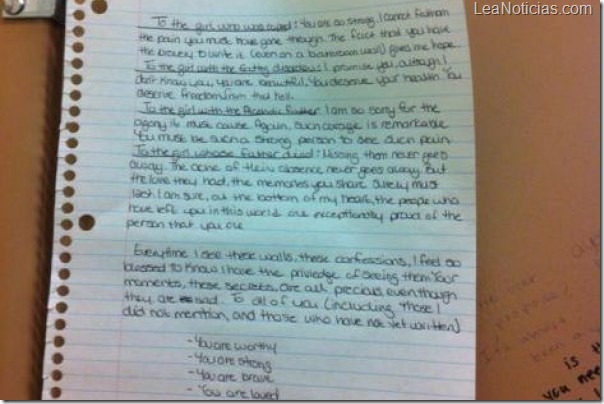 LeaNoticias.com
To the girl who was raped: You are so strong. I cannot fathom
the pain you must have gone through. The fact that you have
the bravery to write it (even on a bathroom wall) gives me hope.
To the girl with the eating disorder: I promise you, although I
don't know you, you are beautiful. You deserve your health. You
deserve freedom from that hell.
To the girl with the father I am so sorry for the
agony it must cause. Again, such courage is remarkable.
You must be such a strong person to see such pain.
To the girl whose father died: Missing them never goes
away. The ache of their absence never goes away. But
the love they had, the memories you share surely must
last. I am sure, at the bottom of my heart, the people who
have left you in this world are exceptionally proud of the
person that you are
Everytime I see these walls, these confessions, I feel so
blessed to know I have the priviledge of seeing them. Your
moments, these secrets, are all precious, even though
they are sad. To all of you (including those I
did not mention, and those who have not yet written)
- You are worthy
- You are strong
- You are brave
- You are loved
is
you need